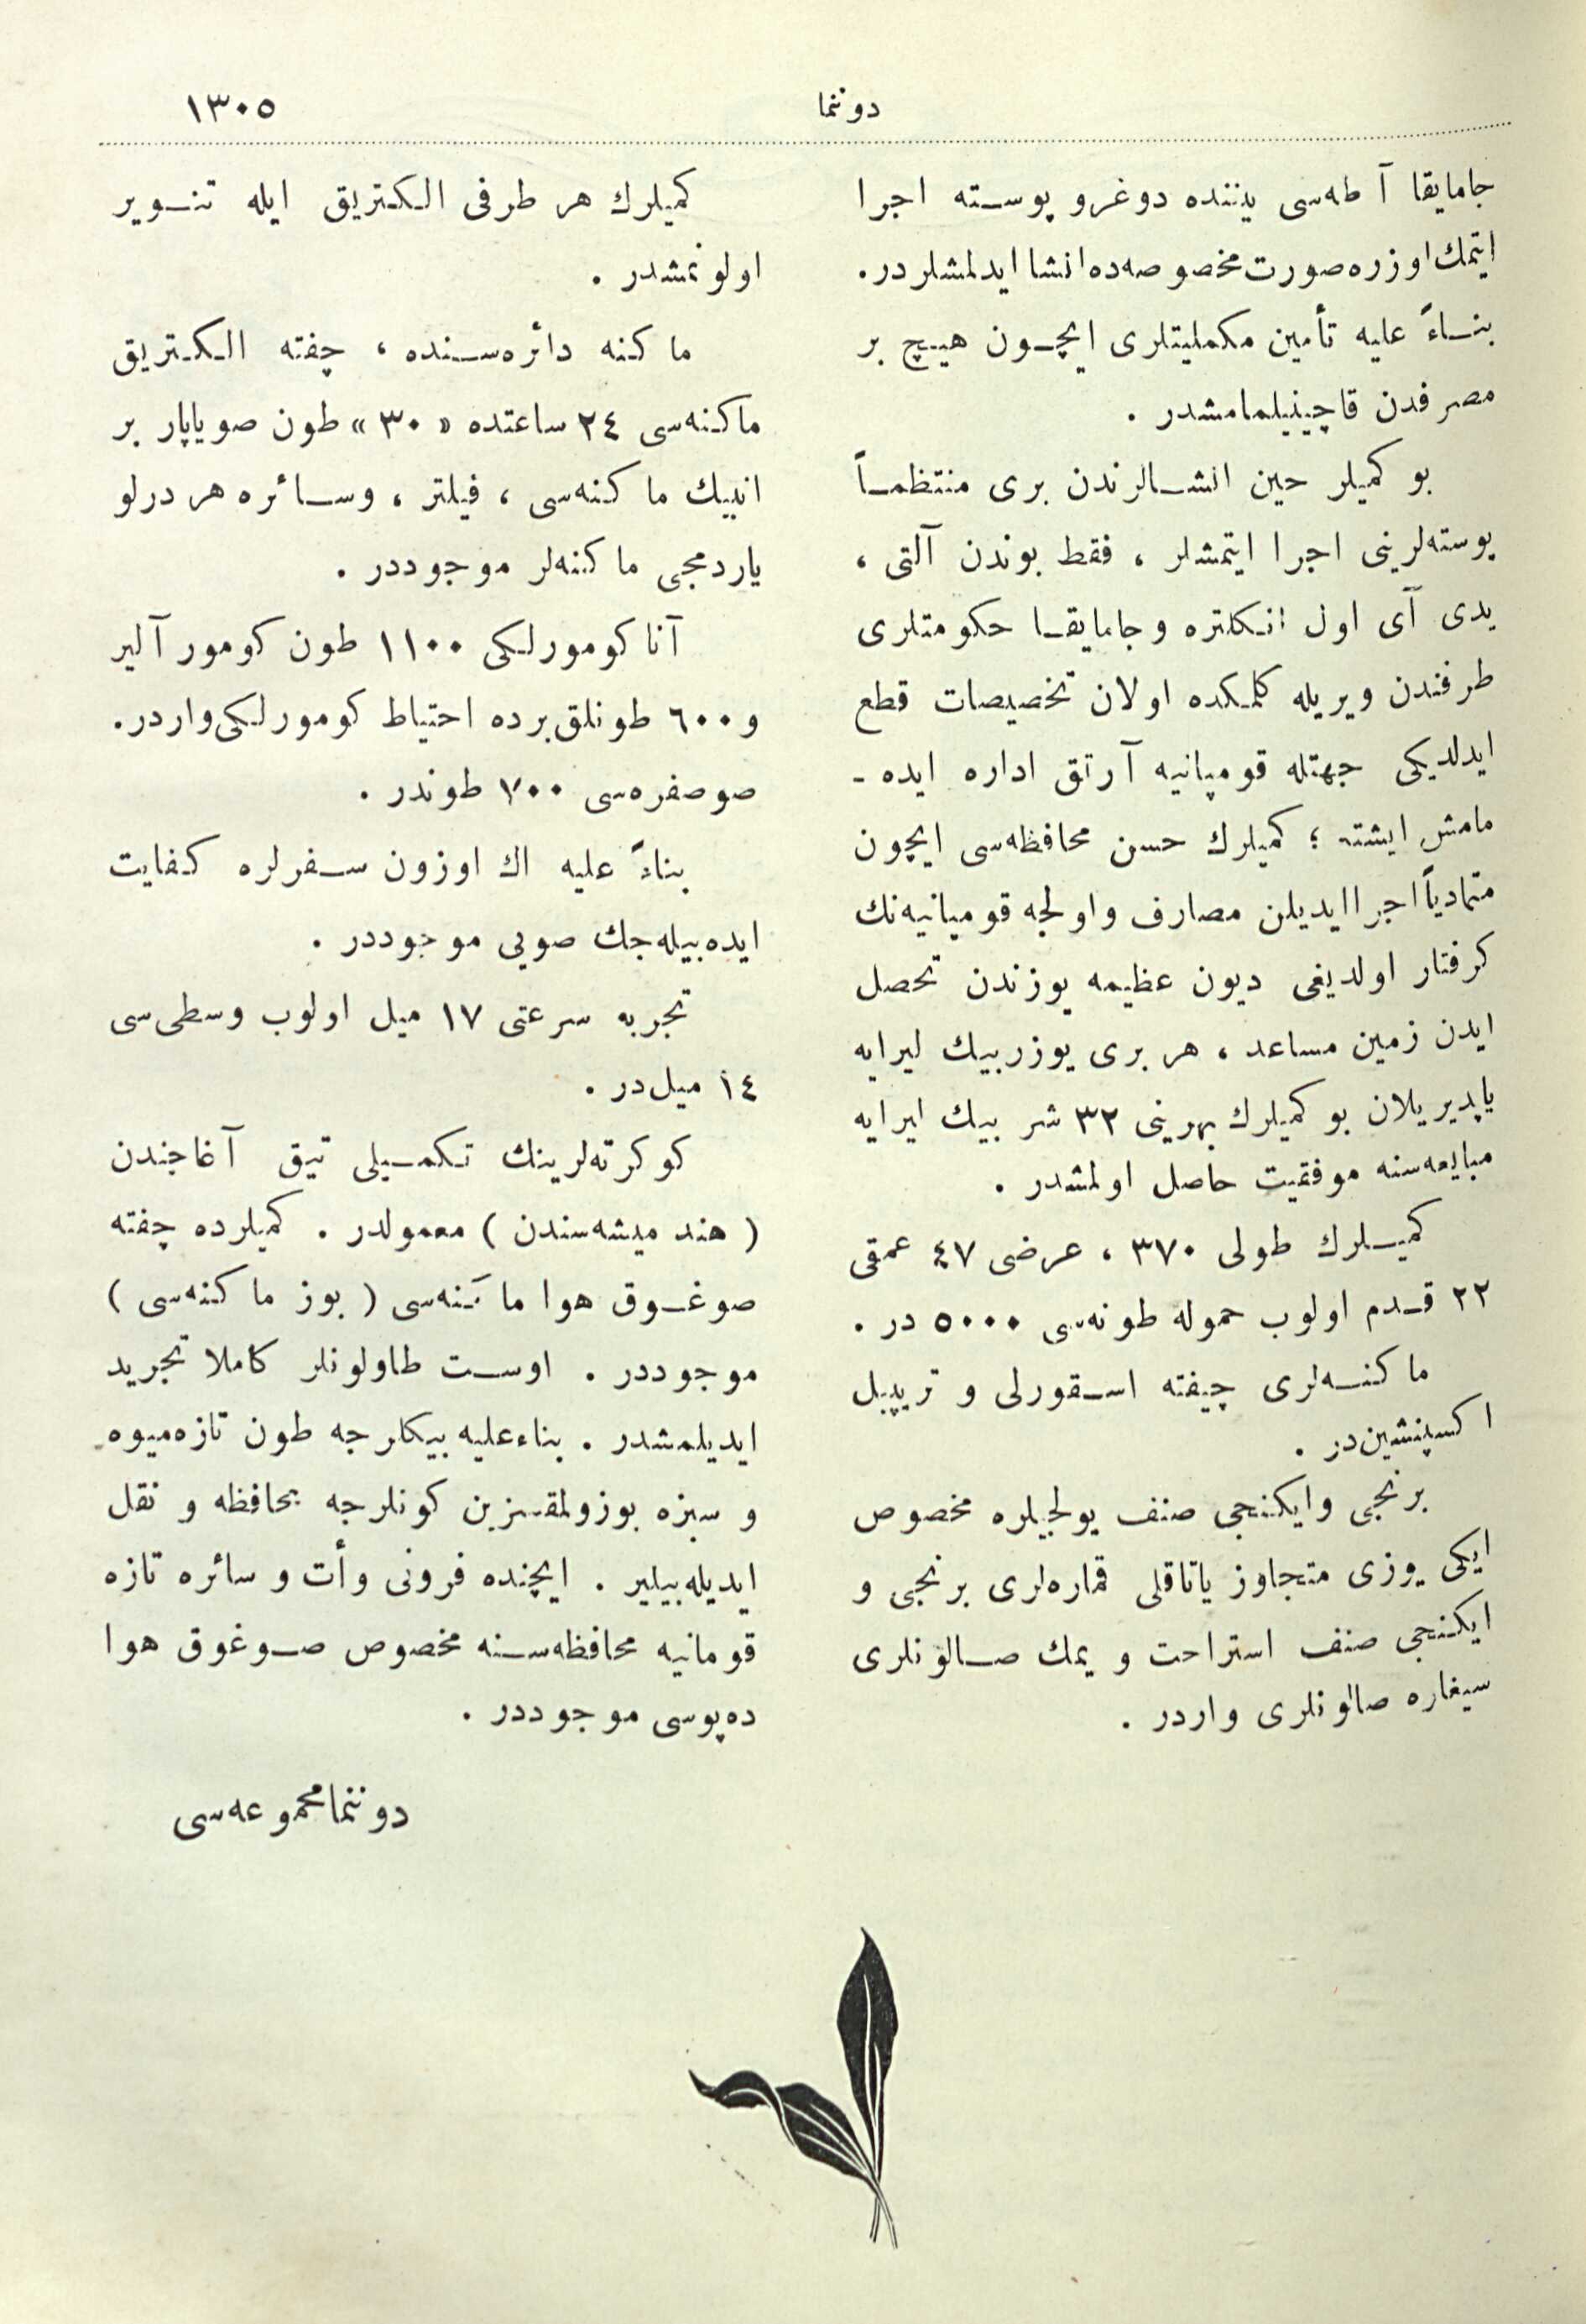 دوننما
١٣٠٥
جامايقا آطه‌سى يننده دوغرو پوسته اجرا
ايتمك اوزره صورت مخصوصه‌ده انشا ايدلمشلردر.
بنــاءً عليه تأمين مكمليتلرى ايچــون هيــچ بر
مصرفدن قاچينيلمامشدر .
بو كميلر حين انشــالرندن برى منتظمــاً
پوسته‌لرينى اجرا ايتمشلر ، فقط بوندن آلتى ،
يدى آى اول انكلتره و جامايقــا حكومتلرى
طرفندن ويريله كلمكده اولان تخصيصات قطع
ايدلديكى جهتله قومپانيه آرتق اداره ايده -
مامش ايشته ؛ كميلرك حسن محافظه‌سى ايچون
متمادياً اجرا ايديلن مصارف و اولجه قومپانيه‌نك
كرفتار اولديغى ديون عظيمه يوزندن تحصل
ايدن زمين مساعد ، هر برى يوزر بيك ليرايه
ياپديريلان بو كميلرك بهرينى ٣٢ شر بيك ليرايه
مبايعه‌سنه موفقيت حاصل اولمشدر .
كميــلرك طولى ٣٧٠ ، عرضى ٤٧ عمقى
٢٢ قــدم اولوب حموله طونه‌سى ٥٠٠٠ در .
ماكنــه‌لرى چيفته اســقورلى و تريپل
اكسپنشين‌در .
برنجى و ايكنجى صنف يولجيلره مخصوص
ايكى يوزى متجاوز ياتاقلى قماره‌لرى برنجى و
ايكنجى صنف استراحت و يمك صــالونلرى
سيغاره صالونلرى واردر .
كميلرك هر طرفى الــكتريق ايله تنــوير
اولونمشدر .
ماكنه دائره‌ســنده ، چفته الــكتريق
ماكنه‌سى ٢٤ ساعتده « ٣٠ » طون صو ياپار بر
انبيك ماكنه‌سى ، فيلتر ، وســائره هر درلو
ياردمجى ماكنه‌لر موجوددر .
آنا كومورلكى ١١٠٠ طون كومور آلير
و ٦٠٠ طونلق برده احتياط كومورلكى واردر.
صو صفره‌سى ٧٠٠ طوندر .
بناءً عليه اك اوزون ســفرلره كفايت
ايده‌بيله‌جك صويى موجوددر .
تجربه سرعتى ١٧ ميل اولوب وسطى‌سى
١٤ ميل‌در .
كوكرته‌لرينك تكمــيلى تيق آغاجندن
( هند ميشه‌سندن ) معمولدر . كميلرده چفته
صوغــوق هوا ماكنه‌سى ( بوز ماكنه‌سى )
موجوددر . اوســت طاولونلر كاملا تجريد
ايديلمشدر . بناءعليه بيكلرجه طون تازه‌ميوه
و سبزه بوزولمقسزين كونلرجه محافظه و نقل
ايديله‌بيلير . ايچنده فرونى و أت و سائره تازه
قومانيه محافظه‌ســنه مخصوص صــوغوق هوا
ده‌پوسى موجوددر .
دوننما مجموعه‌سى